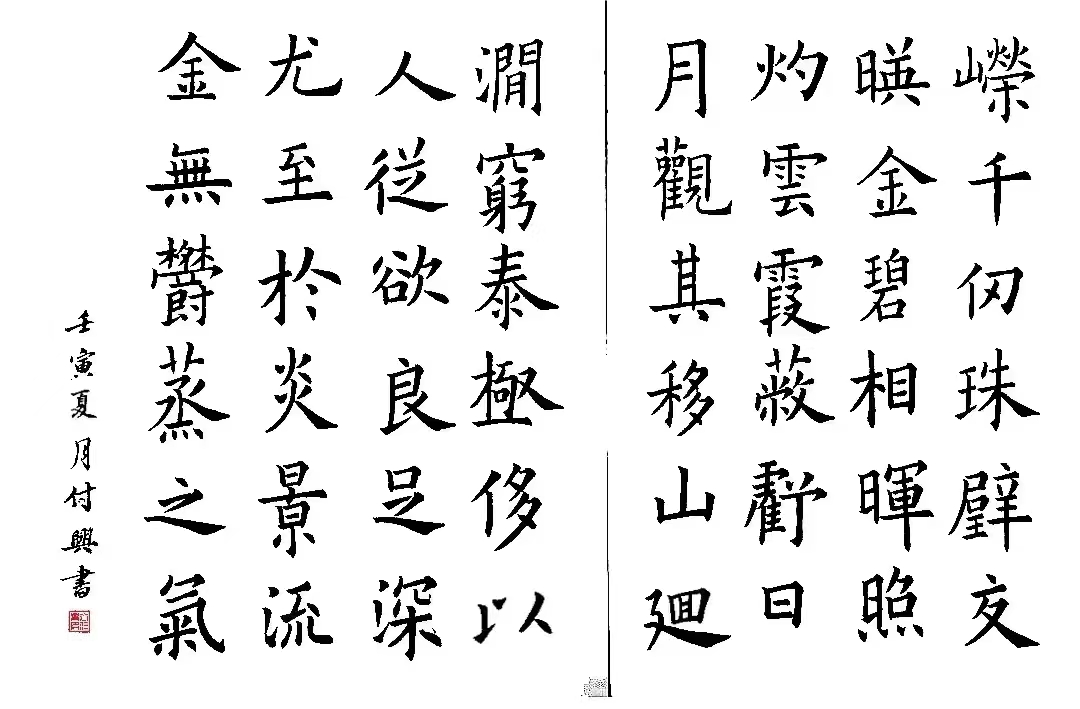 嶸千仞珠璧交
暎金碧相暉照
灼雲霞蔽虧日
月觀其移山廻
澗窮泰極侈以
人従欲良足深
尤至於炎景流
金無鬱蒸之氣
壬寅夏月付興書